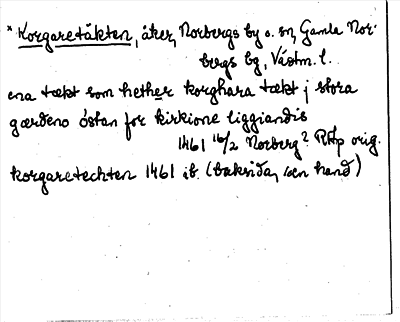 * Korgaretäkten, åker, Norbergs by o. sn, Gamla Nor-
bergs bg, Västm. l.
ena tækt som hether korghara tækt j stora
gærdeno östan for kirkione liggiandis
1461 16/2 Norberg? RAp orig.
korgaretechten 1461 ib. (baksida, sen hand)